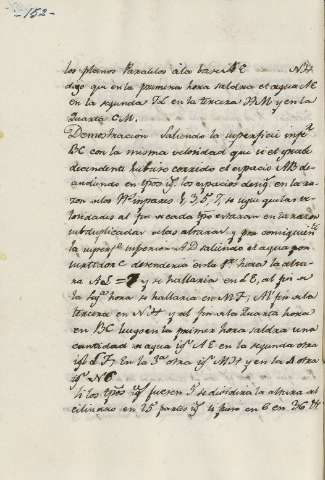 -152-
los planos Paralelos à la base AE NH
digo que en la primera hora saldrà el agua AE
en la segunda IL en la tercera HM y en la
Quarta CM.
Demostracion Saliendo la superficie infr
BC con la misma velocidad que si el grabe
decendente hubiese corrido el espacio AB
en tpõs igs los espacios en la ra
zon de los Nos impares 1, 3, 5, 7, se sigue que las ve
locidades al fin de cada tpõ estaran en la razon
subduplicada de las alturas, y por consiguien
la superfe inferior AD saliendo el agua por
C decenderia en la 1a hora la altu
ra AE = 7 y se hallaria en LE, al fin de
la segda hora se hallaria en MF, al fin de la
tercera en NH y al fin de la Quarta hora
en BC luego en la primer hora saldra una
cantidad de agua igl AE en la segunda otra
igl LF, En la 3a otra igl MH y en la 4 otra
igl NC
Si los tpõs igs fueren 5 se dividirà la altura del
cilindro en 25 partes igs si fueren 6 en 36 &